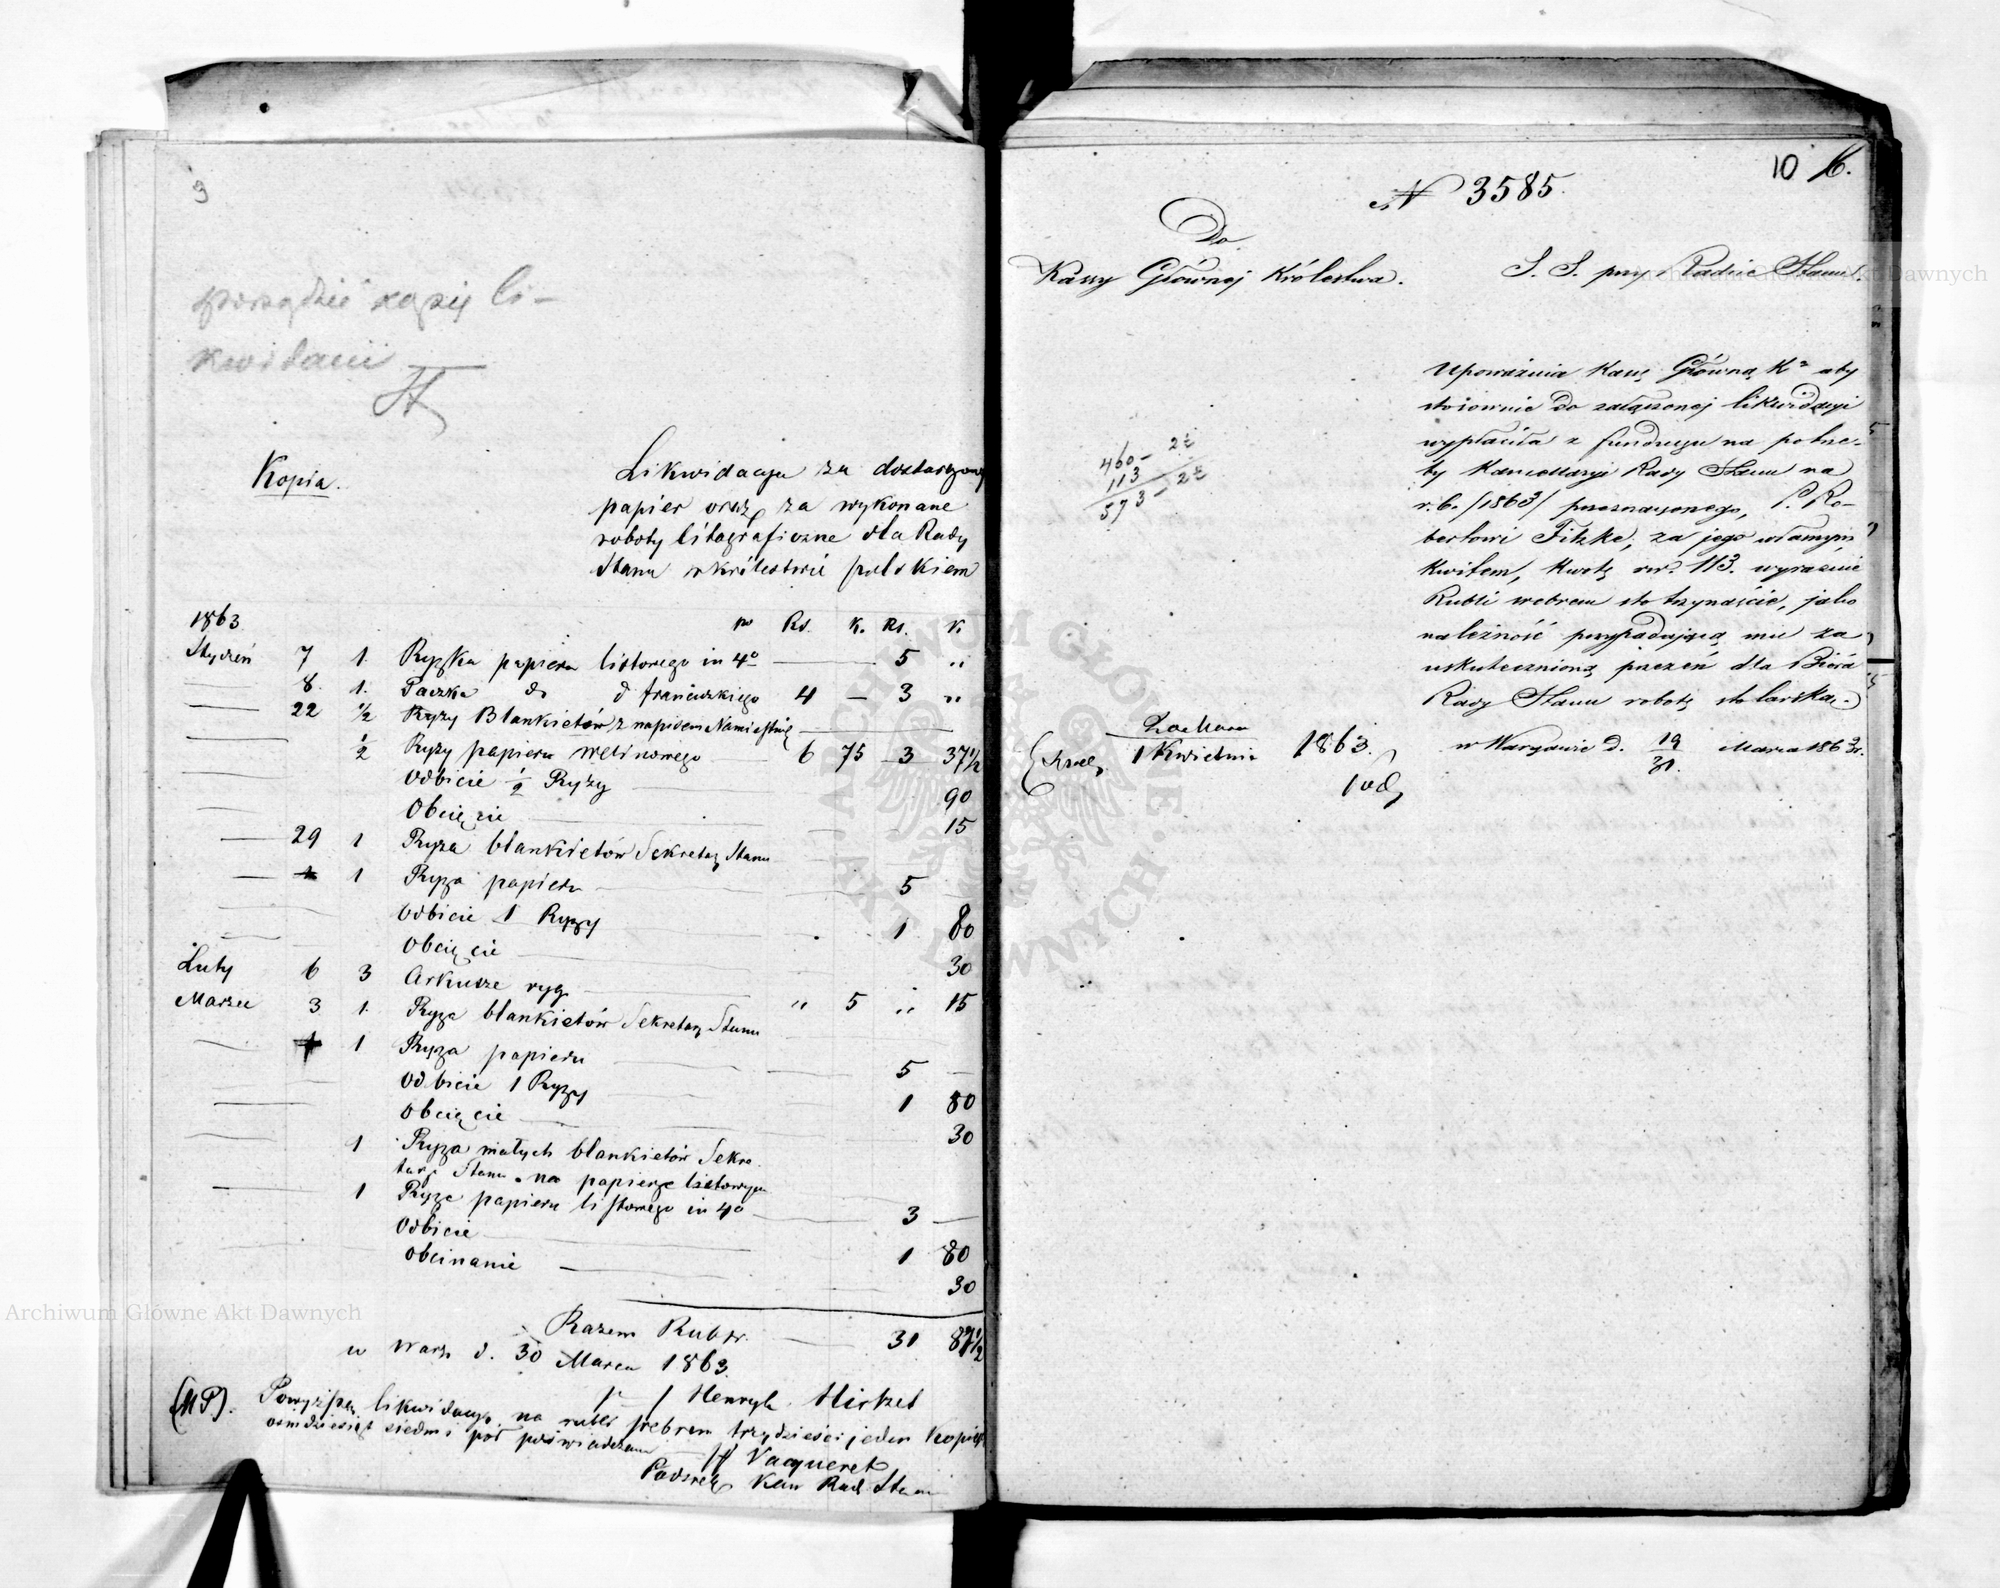 9
sporządzić kopię li-
kwidacii
Kopia.
Likwidacya za dostarczony
papier oraz za wykonane
roboty litograficzne dla Rady
Stanu w królestwie polskiem
1863 po Rs. K. Rs. K
Styczeń 7 1. Ryzka papieru listowego in 4o 5 "
8. 1. Paczka do d francuzkiego 4 — 3 "
22 1/2 Ryzy Blankietów z napisem Namiestnik
1/2 Ryzy papieru welinowego 6 75 3 37 1/2
Odbicie 1/2 Ryzy 90
Obcięcie 15
29 1 Ryza blankietów Sekretarz Stanu
1 Ryza papieru 5
Odbicie 1 Ryzy 1 80
Obcięcie 30
Luty 6 3 Arkusze ryg. " 5 " 15
Marzec 3 1. Ryza blankietów Sekretarz Stanu
1 Ryza papieru 5 —
Odbicie 1 Ryzy 1 80
Obcięcie 30
1 Ryza małych blankietów Sekre-
tarz Stanu na papierze listowym
1 Ryza papieru listowego in 4o 3 —
Odbicie 1 80
Obcinanie 30
Razem Rubsr. 31 87 1/2
w Warsz d. 30 Marca 1863
Henryk Hirszel
(MP). Powyższą likwidacyę na rubli srebrem trzydzieści jeden Kopiejk
ośmdziesiąt siedm i pół poświadczam
Vacqueret
Podsrek Kan Rad Stanu
10 16.
N 3585.
Do
Kassy Głównej Królestwa.
S. S. przy Radzie Stanu.
Upoważnia Kassę Główną K. aby
stosownie do załączonej likwidacyi
wypłaciła z funduszu na potrze-
by Kancellaryi Rady Stanu na
r. b. /1863/ przeznaczonego, P. Ro-
bertowi Fitzke, za jego własnym
Kwitem, Kwotę rsr. 113. wyraźnie
Rubli srebrem sto trzynaście, jako
należność przypadającą mu za
uskutecznioną przezeń dla Bióra
Rady Stanu robotę stolarską.
460 – 2 1/2
113
573 – 2 1/2
20 Marca
1 Kwietnia 1863.
w Warszawie d. 19/31. Marca 1863 r.